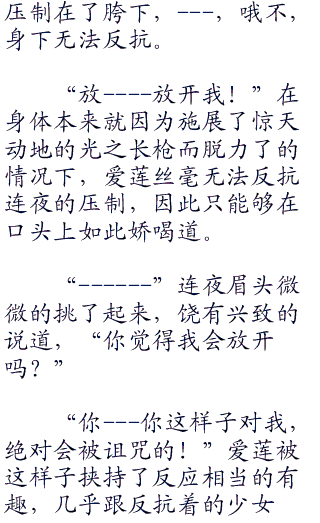 压制在了胯下，---，哦不，
身下无法反抗。
“放----放开我！”在
身体本来就因为施展了惊天
动地的光之长枪而脱力了的
情况下，爱莲丝毫无法反抗
连夜的压制，因此只能够在
口头上如此娇喝道。
“------”连夜眉头微
微的挑了起来，饶有兴致的
说道，“你觉得我会放开
吗？”
“你---你这样子对我，
绝对会被诅咒的！”爱莲被
这样子挟持了反应相当的有
趣，几乎跟反抗着的少女